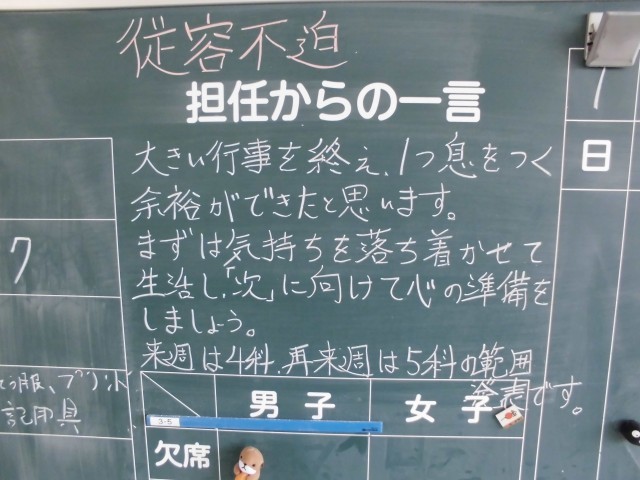 従容不迫
担任からの一言
大きい行事を終え、1つ息をつく
余裕ができたと思います。
まずは気持ちを落ち着かせて
生活し、「次」に向けて心の準備を
しましょう。
来週は4科、再来週は5科の範囲
発表です。
1
日
7
服、プリント
記用具
男子
女子
3-5
欠席